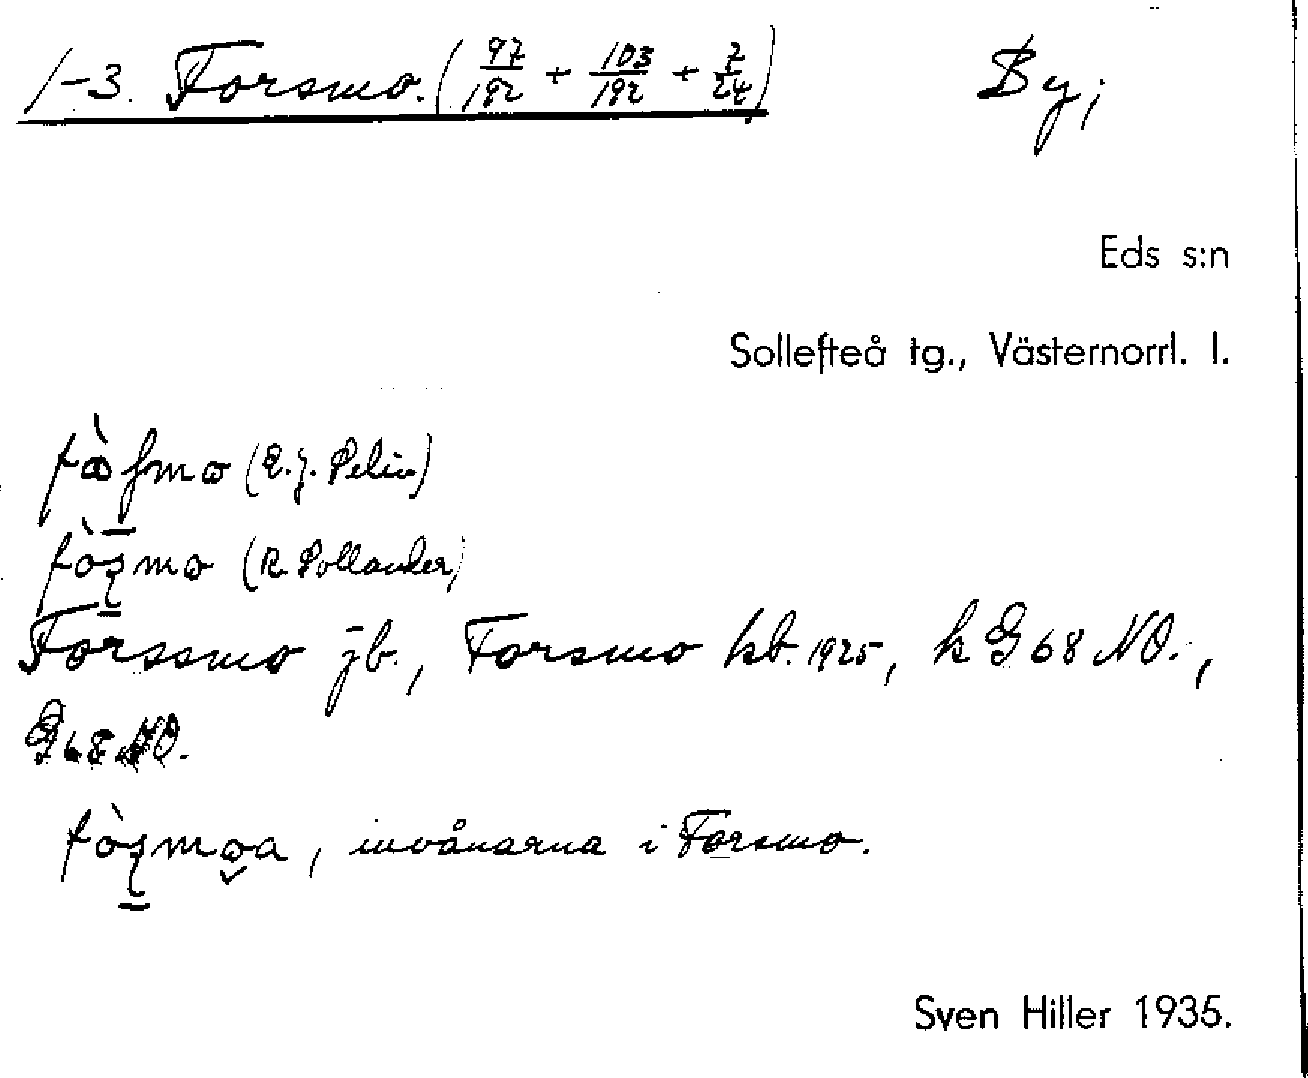 1-3. Forsmo. (97/192 + 103/192 + 7/24) By;
Eds s:n
Sollefteå tg., Västernorrl. l.
(E.J. Pelin)
(R. Pollander)
Forssmo jb., Forsmo kb. 1925, k G 68 NO.,
G 68 NO.
, invånarna i Forsmo.
Sven Hiller 1935.